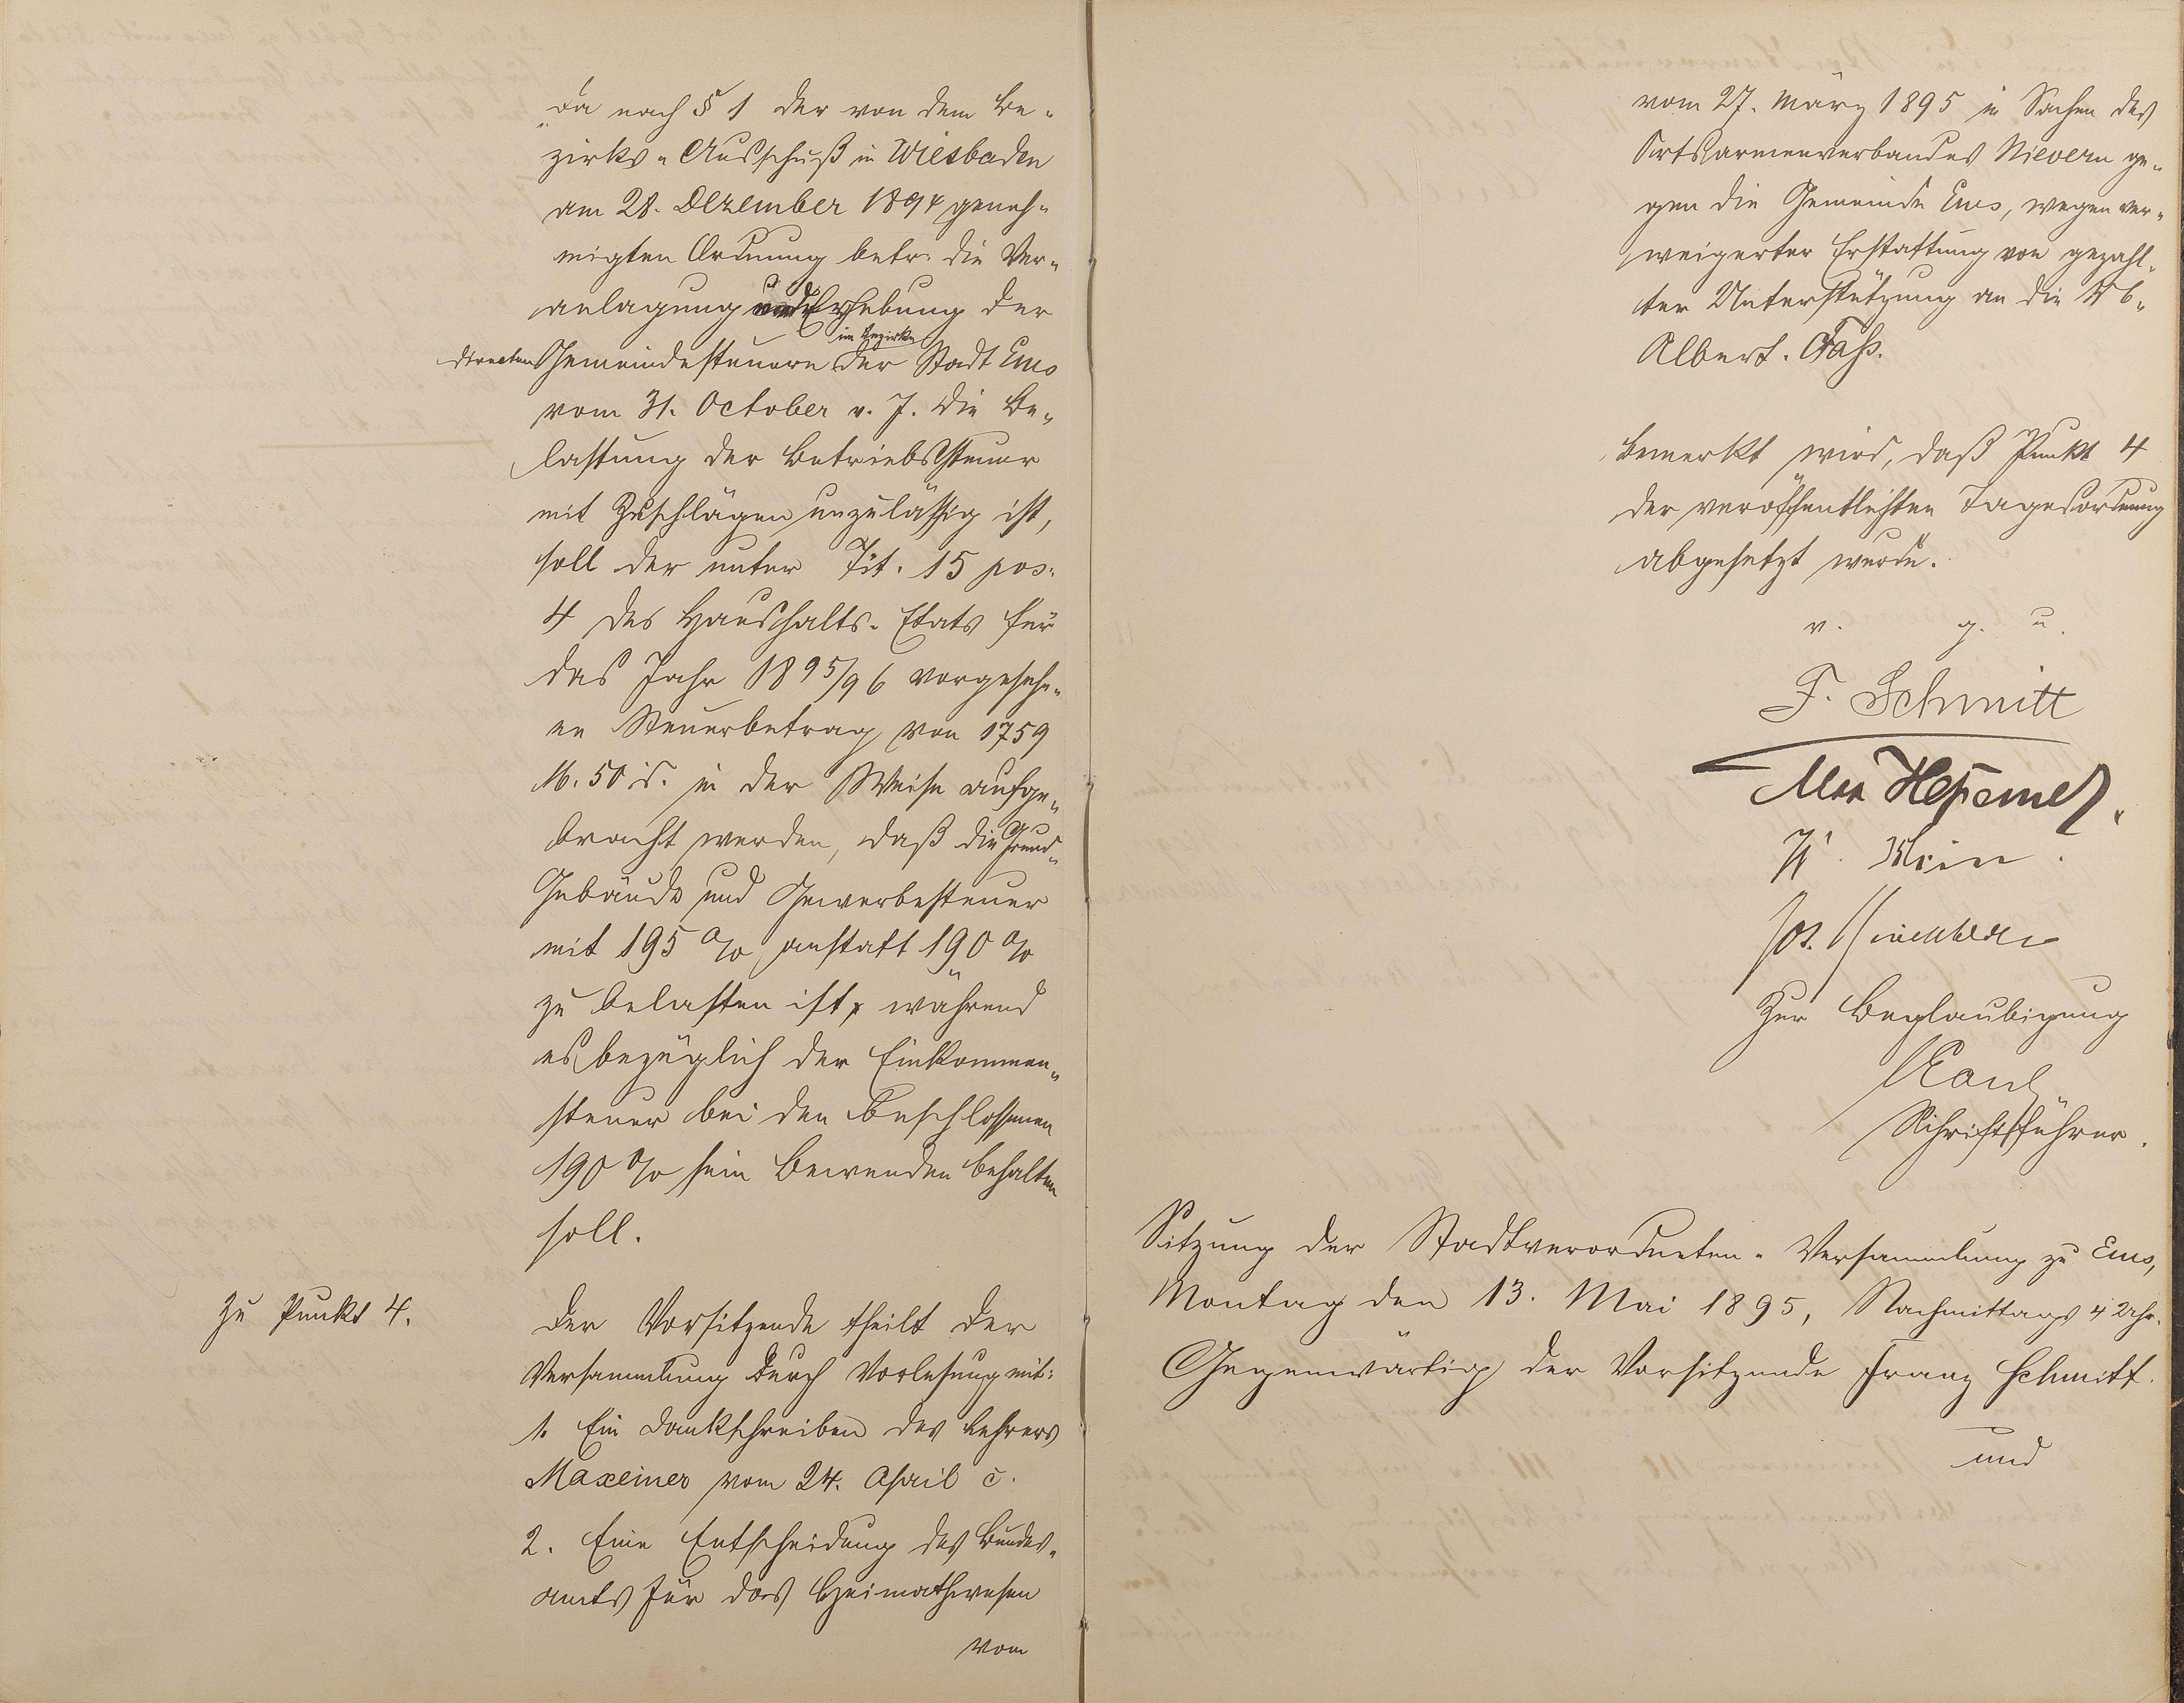 „Da nach § 1 der von dem Be-
zirks-Ausschuß in Wiesbaden
am 28. Dezember 1894 geneh-
migten Ordnung betr. die Ver-
anlagung und Erhebung der
directen Gemeindesteuern im Bezirke der Stadt Ems
vom 31. October v. J. die Be-
lastung der Betriebssteuer
mit Zuschlägen unzulässig ist,
soll der unter Tit. 15 pos.
4 des Haushalts-Etats für
das Jahr 1895/96 vorgesehe-
ne Steuerbetrag von 1759
M. 50 d. in der Weise aufge-
bracht werden, daß die Grund-
Gebäude und Gewerbesteuer
mit 195 % anstatt 190 %
zu belasten ist, während
es bezüglich der Einkommen-
steuer bei den beschlossenen
190 % sein Bewenden behalten
soll.
Zu Punkt 4.
Der Vorsitzende theilt der
Versammlung durch Vorlesung mit:
1. Ein Dankschreiben des Lehrers
Maxeiner vom 24. April c.
2. Eine Entscheidung des Bundes-
amts für das Heimathwesen
vom
vom 27. März 1895 in Sachen des
Ortsarmenverbandes Nievern ge-
gen die Gemeinde Ems, wegen ver-
weigerter Erstattung von gezahl-
ter Unterstützung an die
Albert.
Bemerkt wird, daß Punkt 4
der veröffentlichten Tagesordnung
abgesetzt wurde.
v. g. u.
F. Schmitt
Max
Klein.
Jos.
Zur Beglaubigung
Kaul
Schriftführer.
Sitzung der Stadtverordneten-Versammlung zu Ems,
Montag den 13. Mai 1895, Nachmittags 4 Uhr.
Gegenwärtig der Vorsitzende Franz Schmitt.
und